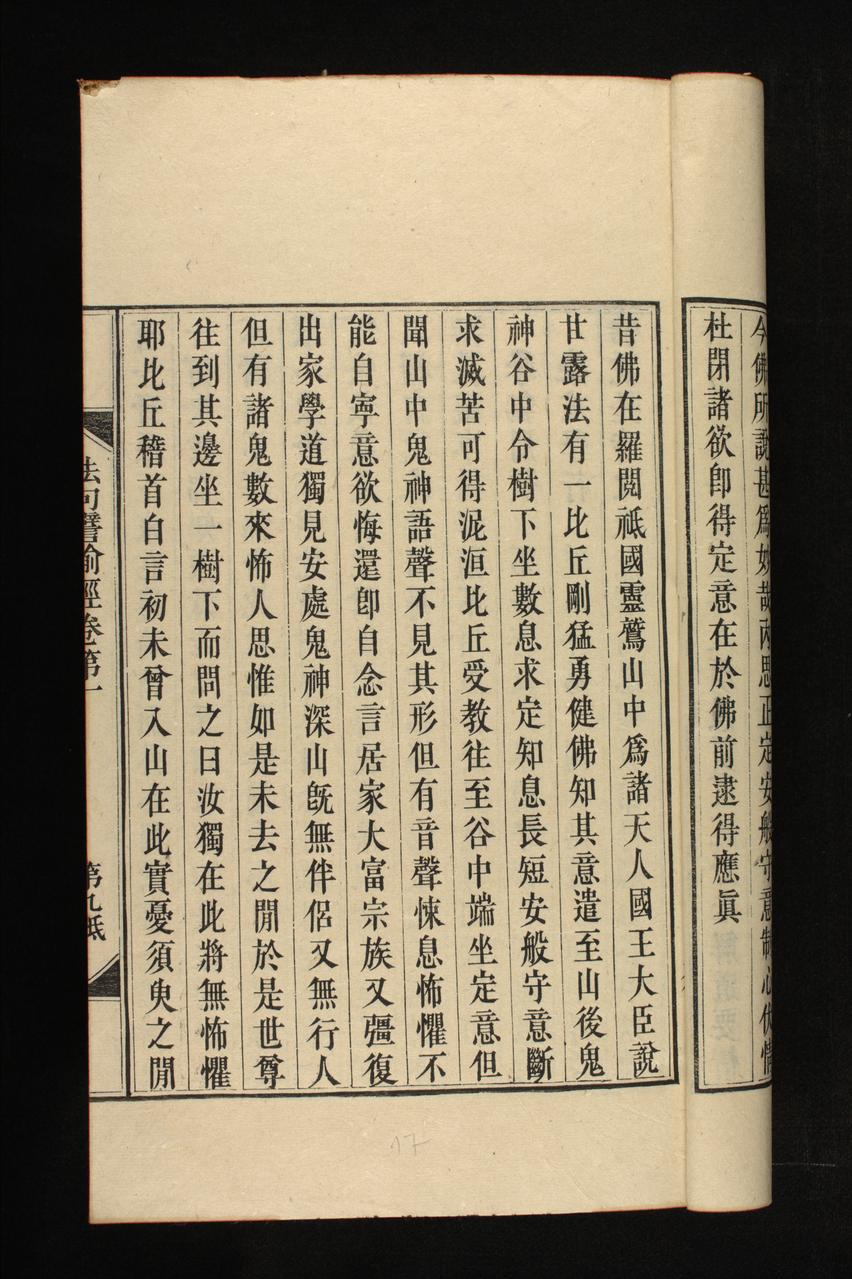 今佛所說甚為妙哉內思正定安般守意制心伏情
杜閉諸欲卽得定意在於佛前逮得應眞
昔佛在羅閱祇國靈鷲山中為諸天人國王大臣說
甘露法有一比丘剛猛勇健佛知其意遣至山後鬼
神谷中令樹下坐數息求定知息長短安般守意斷
求滅苦可得泥洹比丘受教往至谷中端坐定意但
聞山中鬼神語聲不見其形但有音聲悚息怖懼不
能自寧意欲悔還卽自念言居家大富宗族又彊復
出家學道獨見安處鬼神深山旣無伴侶又無行人
但有諸鬼數來怖人思惟如是未去之閒於是世尊
往到其邊坐一樹下而問之曰汝獨在此將無怖懼
耶比丘稽首白言初未曾入山在此實憂須臾之閒
法句譬喻經卷第一
第九紙
17